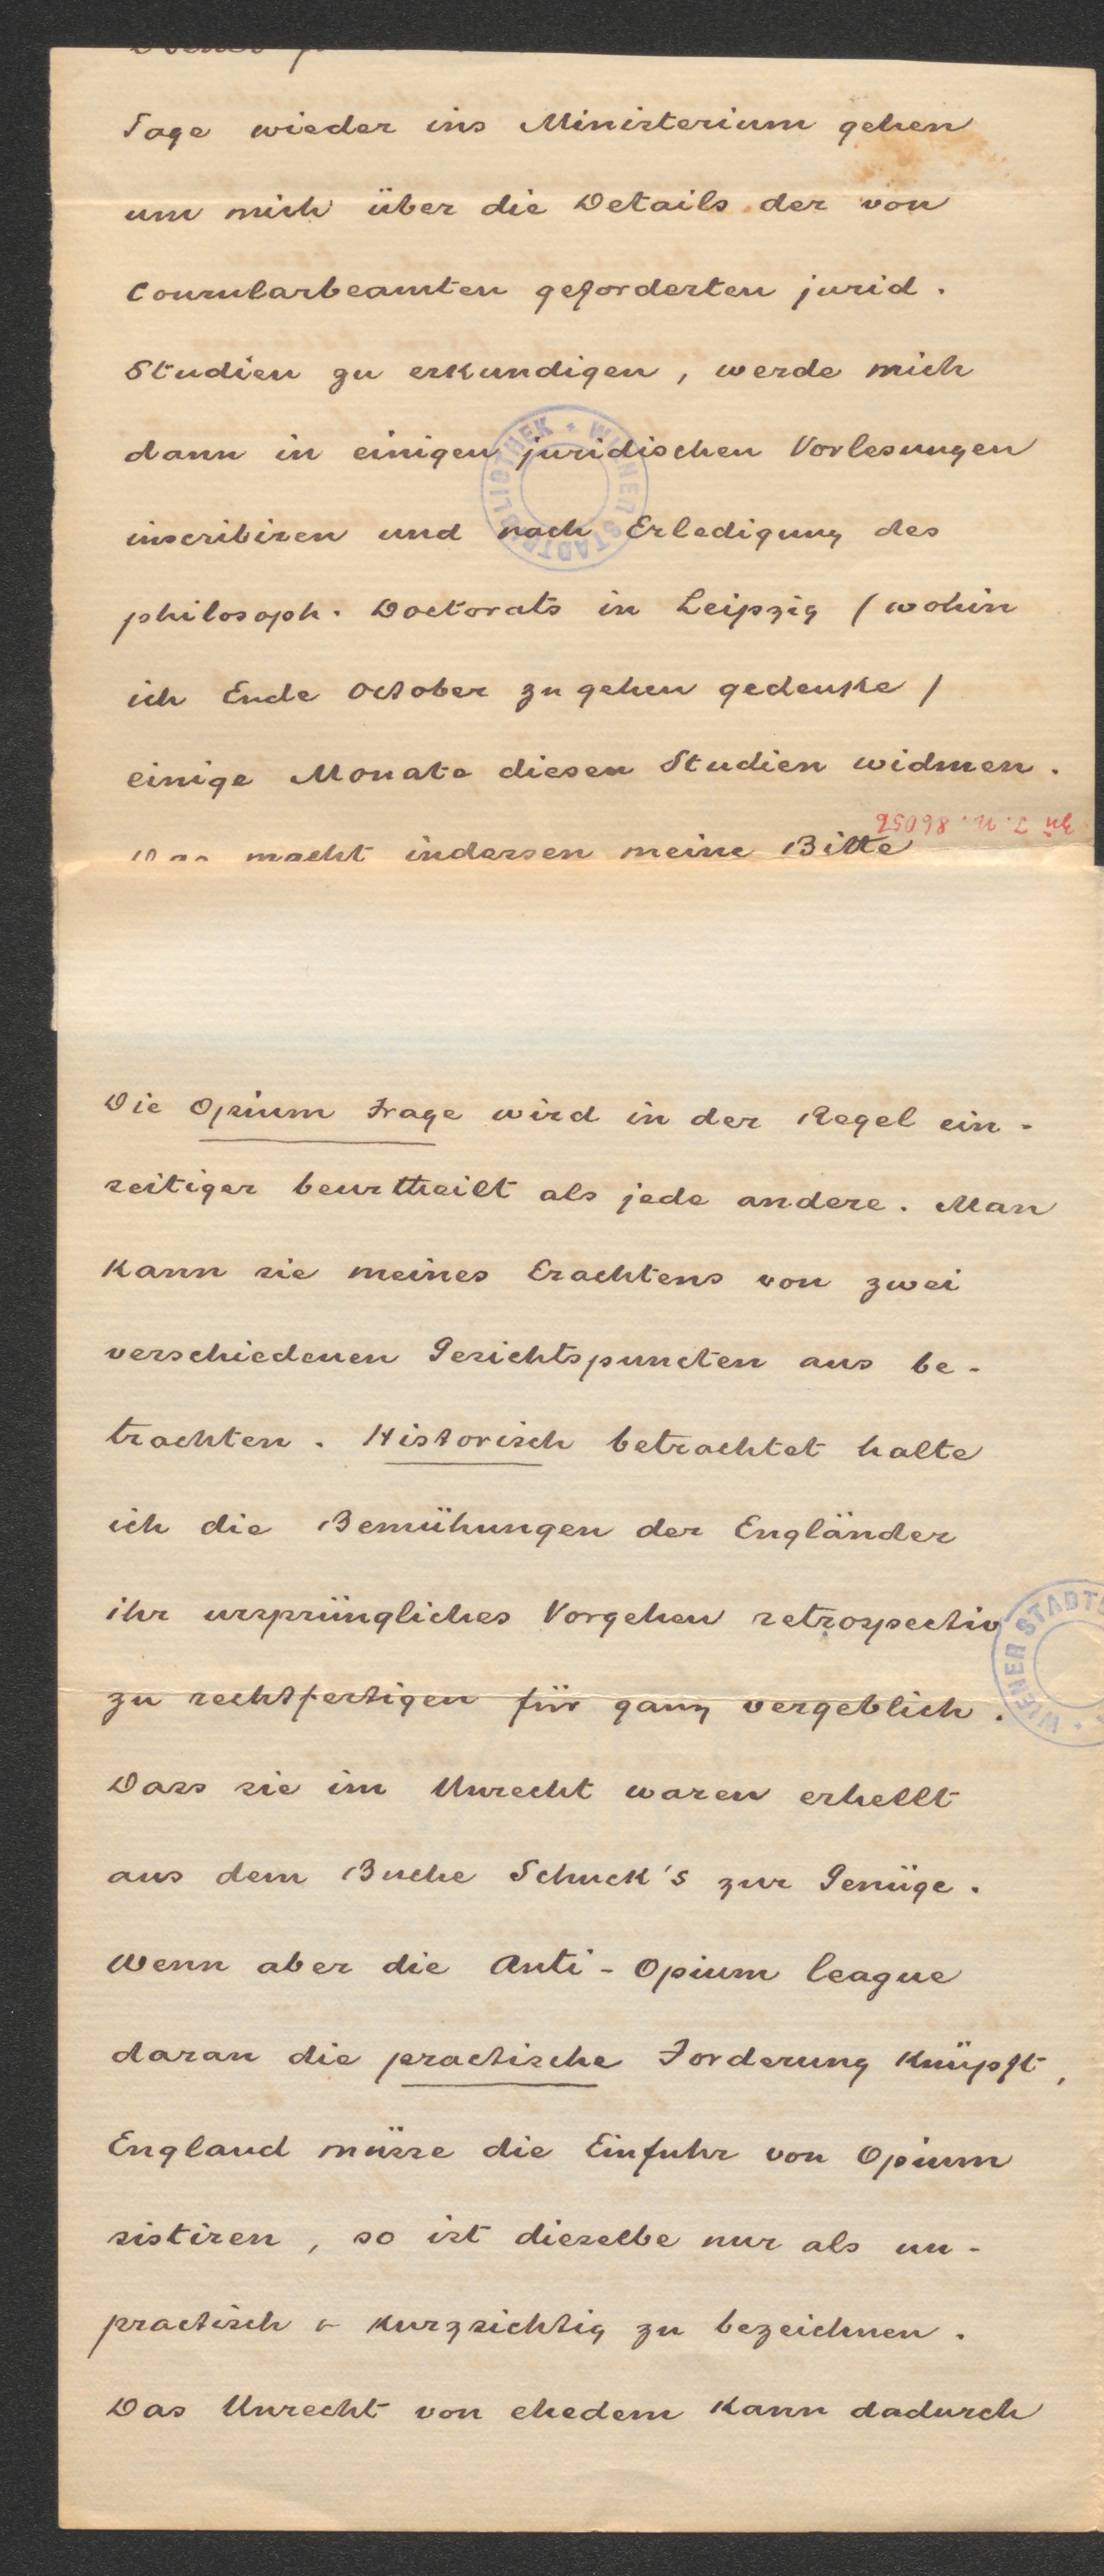 Tage wieder ins Ministerium gehen
um mich über die Details der von
Consularbeamten geforderten jurid.
Studien zu erkundigen, werde mich
dann in einigen juridischen Vorlesungen
inscribiren und nach Erledigung des
philosoph. Doctorats in Leipzig / wohin
ich Ende October zu gehen gedenke /
einige Monate diesen Studien widmen.
Zu I. N. 86056
macht indessen meine Bitte
Die Opium Frage wird in der Regel ein-
seitiger beurtheilt als jede andere. Man
kann sie meines Erachtens von zwei
verschiedenen Gesichtspuncten aus be-
trachten. Historisch betrachtet halte
ich die Bemühungen der Engländer
ihr ursprüngliches Vorgehen retrospectiv
zu rechtfertigen für ganz vergeblich.
Dass sie im Unrecht waren erhellt
aus dem Buche Schuck's zur Genüge.
Wenn aber die Anti-Opium league
daran die practische Forderung knüpft,
England müsse die Einfuhr von Opium
sistiren, so ist dieselbe nur als un-
practisch & kurzsichtig zu bezeichnen.
Das Unrecht von ehedem kann dadurch
WIENER STADTBIBLIOTHEK
WIENER STADTB